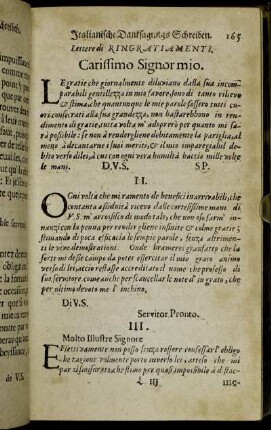 Italianische Dancksagungs Schreiben. 165
Lettere di RINGRATIAMENTI.
Carissimo Signor mio.
LE gratie che giornalmente diluviano dalla sua incom-
parabili gentillezza in mio favore, sono di tanto rilievo
& stima, che quantunque le mie parole fossero tutti cuo-
ri consecrati alla sua grandezza, non bastarebbono in ren-
dimento di gratie, una volta m' adoprerò per quanto mi sa-
rà possibile: se non à renderglicne debitamente la pariglia, al
meno à decantarne i suoi meriti, & il mio impareggiabil de-
bito verso di lei, à cui con ogni vera humiltà baccio mille volte
le mani. D. V. S. S P.
II.
OGni volta che mi ramento de benefici innarrabili, che
contanta assiduità ricevo dalle cortesissime mani di
V. S. m' arrossisco di modo tale, che non oso farm' in-
nanzi con la penna per renderglierne infinite & colme gratie:
stimando di poca efficacia le semplici parole, senza altrimen-
ti le vive demostrationi. Onde bramerei grandatto che la
sorte mi desse campo da poter essercitar il mio grato animo
verso di lei, acciò restasse accreditato il nome che professo di
suo servitore come anche per scancellar le note d' ingrato, che
per ultimo devoto me l' inchino,
Di V. S.
Servitor Pronto.
III.
Molto Illustre Signore
EFfettivamente non posso senza rossore confessar l' obligo
che ragione volmente porto inverso lei, atteso che mi
par dissonsorato, che stimo per quasi impossibile à distac-
L iij are-